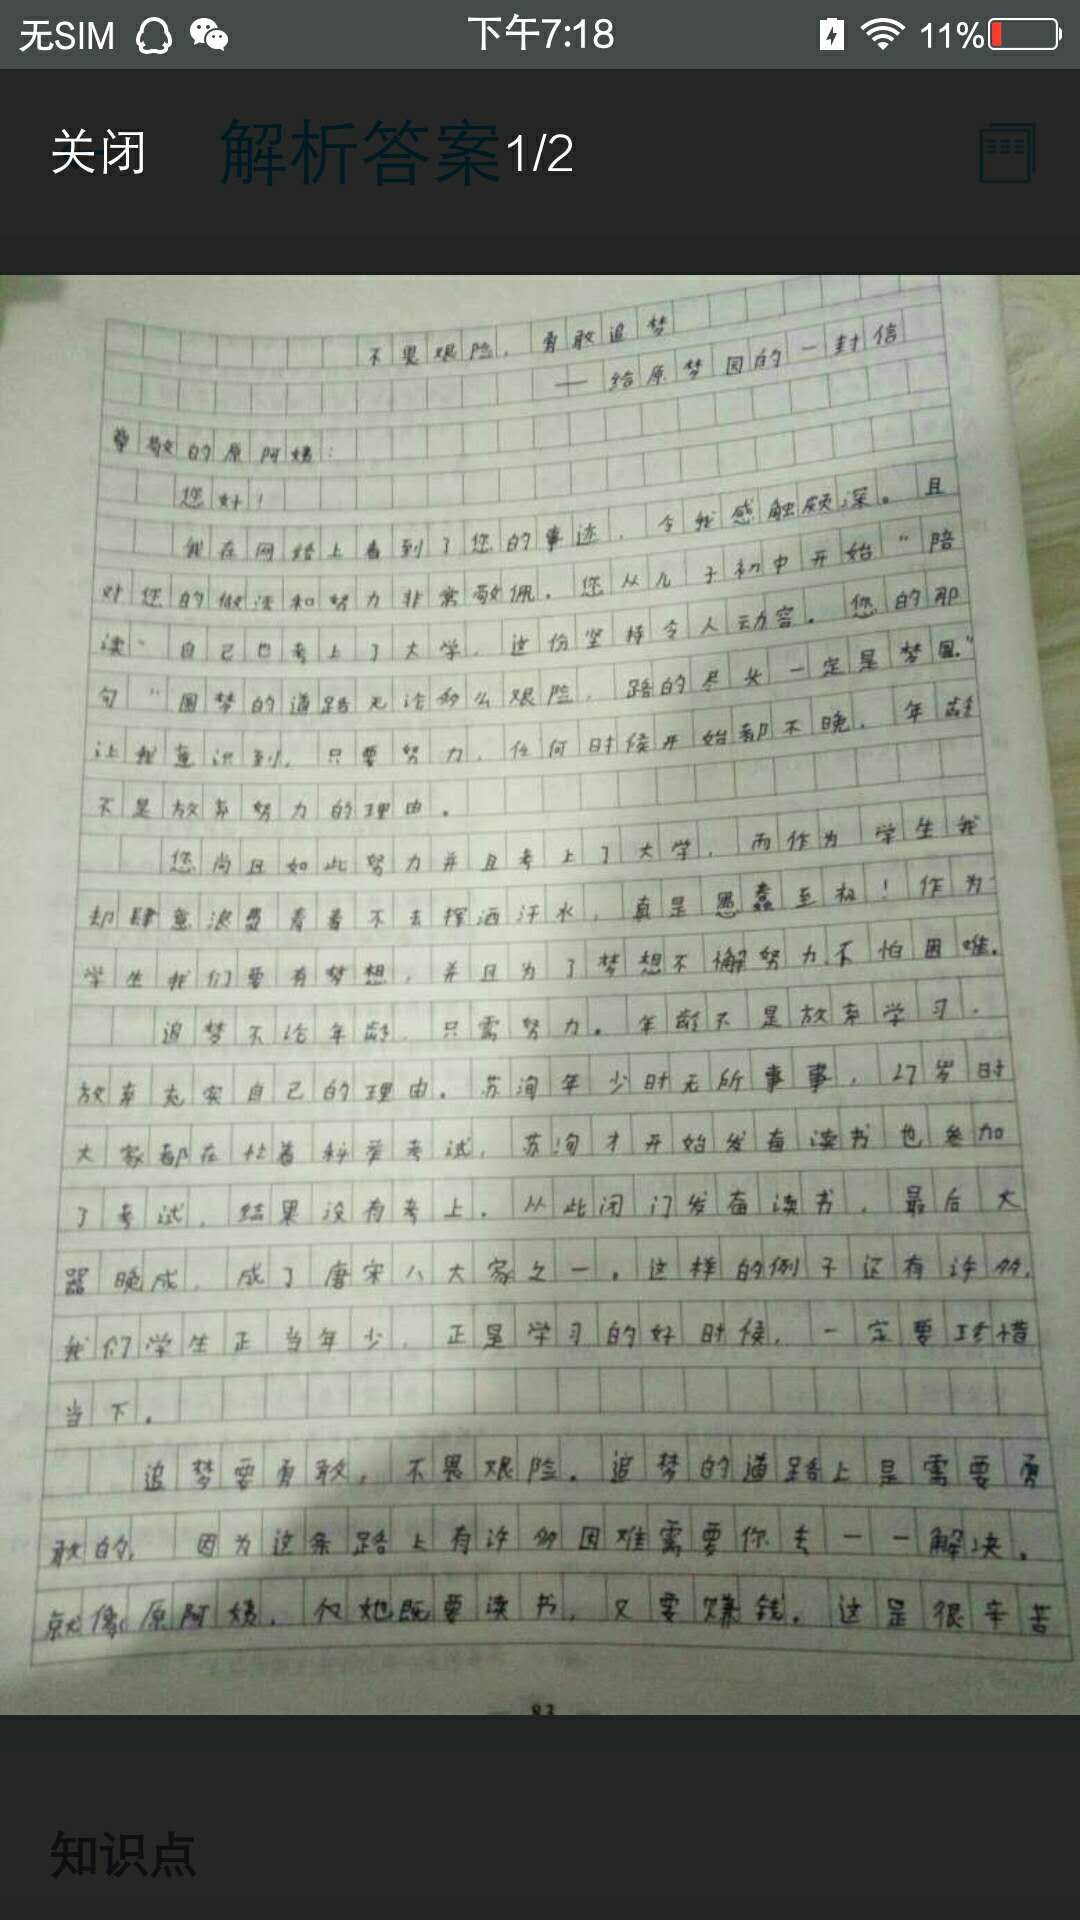 无SIM 下午7:18 11%
关闭 解析答案1/2
不畏艰险,勇敢追梦
——给原梦园的一封信
尊敬的原阿姨:
您好!
我在网络上看到了您的事迹,令我感触颇深。且
对您的做法和努力非常敬佩。您从儿子初中开始“陪
读”自己也考上了大学,这份坚持令人动容。您的那
句“圆梦的道路无论多么艰险,路的尽头一定是梦圆。”
让我意识到,只要努力,任何时候开始都不晚,年龄
不是放弃努力的理由。
您尚且如此努力并且考上了大学,而作为学生我
却肆意浪费青春不去挥洒汗水,真是愚蠢至极!作为
学生我们要有梦想,并且为了梦想不懈努力不怕困难。
追梦不论年龄,只需努力。年龄不是放弃学习,
放弃充实自己的理由。苏洵年少时无所事事,27岁时
大家都在忙着科举考试,苏洵才开始发奋读书也参加
了考试,结果没有考上。从此闭门发奋读书,最后大
器晚成,成了唐宋八大家之一。这样的例子还有许多,
我们学生正当年少,正是学习的好时候,一定要珍惜
当下。
追梦要勇敢,不畏艰险。追梦的道路上是需要勇
敢的,因为这条路上有许多困难需要你去一一解决。
就像原阿姨,她既要读书,又要赚钱,这是很辛苦
83
知识点